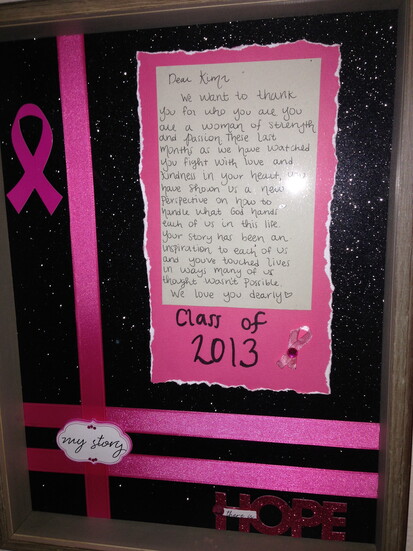 Dear Kim,
We want to thank
you for who you are you
are a woman of strength
and passion. These last
months as we have watched
you fight with love and
kindness in your heart, you
have shown us a new
perspective on how to
handle what God hands
each of us in this life.
Your story has been an
inspiration to each of us
and you've touched lives
in ways many of us
thought wasn't possible.
We love you dearly♡
Class of
2013
my story
there is
HOPE